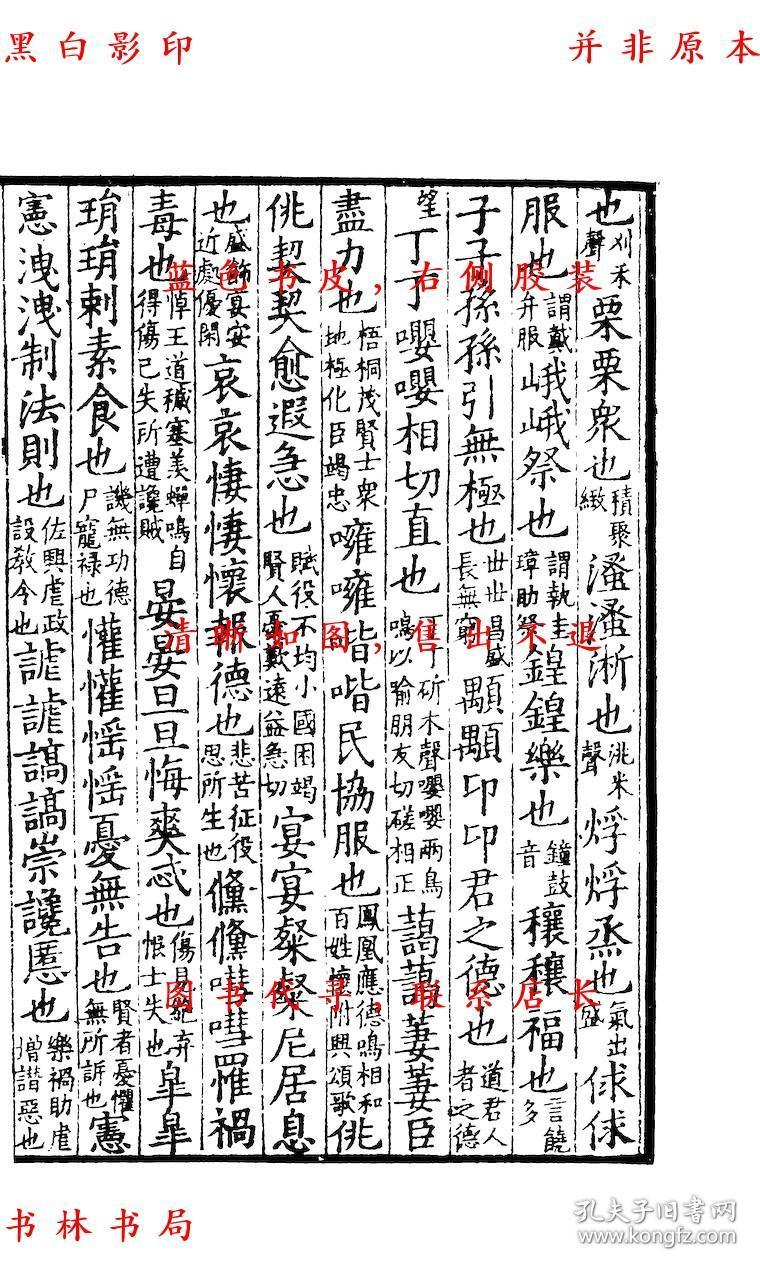 黑白影印
并非原本
也刈禾聲栗栗衆也積聚緻溞溞淅也洮米聲烰烰烝也氣出盛俅俅
服也謂戴弁服峨峨祭也謂執圭璋助祭鍠鍠樂也鐘鼓音穰穰福也言饒多
子子孫孫引無極也世世昌盛長無窮顒顒卬卬君之德也道君人者之德
望丁丁嚶嚶相切直也丁丁斫木聲嚶嚶兩鳥鳴以喻朋友切磋相正藹藹萋萋臣
盡力也梧桐茂賢士衆地極化臣竭忠噰噰喈喈民協服也鳳凰應德鳴相和百姓懷附興頌歌佻
佻契契愈遐急也賦役不均小國困竭賢人憂歎遠益急切宴宴粲粲尼居息
也盛飾宴安近處優閑哀哀悽悽懷報德也悲苦征役思所生也儵儵嘒嘒罹禍
毒也悼王道穢塞羨蟬鳴自得傷己失所遭讒賊晏晏旦旦悔爽忒也傷見絕弃恨士失也皐皐
琄琄刺素食也譏無功德尸寵禄也懽懽愮愮憂無告也賢者憂懼無所訴也憲
憲洩洩制法則也佐興虐政設教令也謔謔謞謞崇讒慝也樂禍助虐增譖惡也
蓝色书皮，右侧胶装
清晰如图，售出不退
图书代寻，联系店长
书林书局
孔夫子旧书网
www.kongfz.com